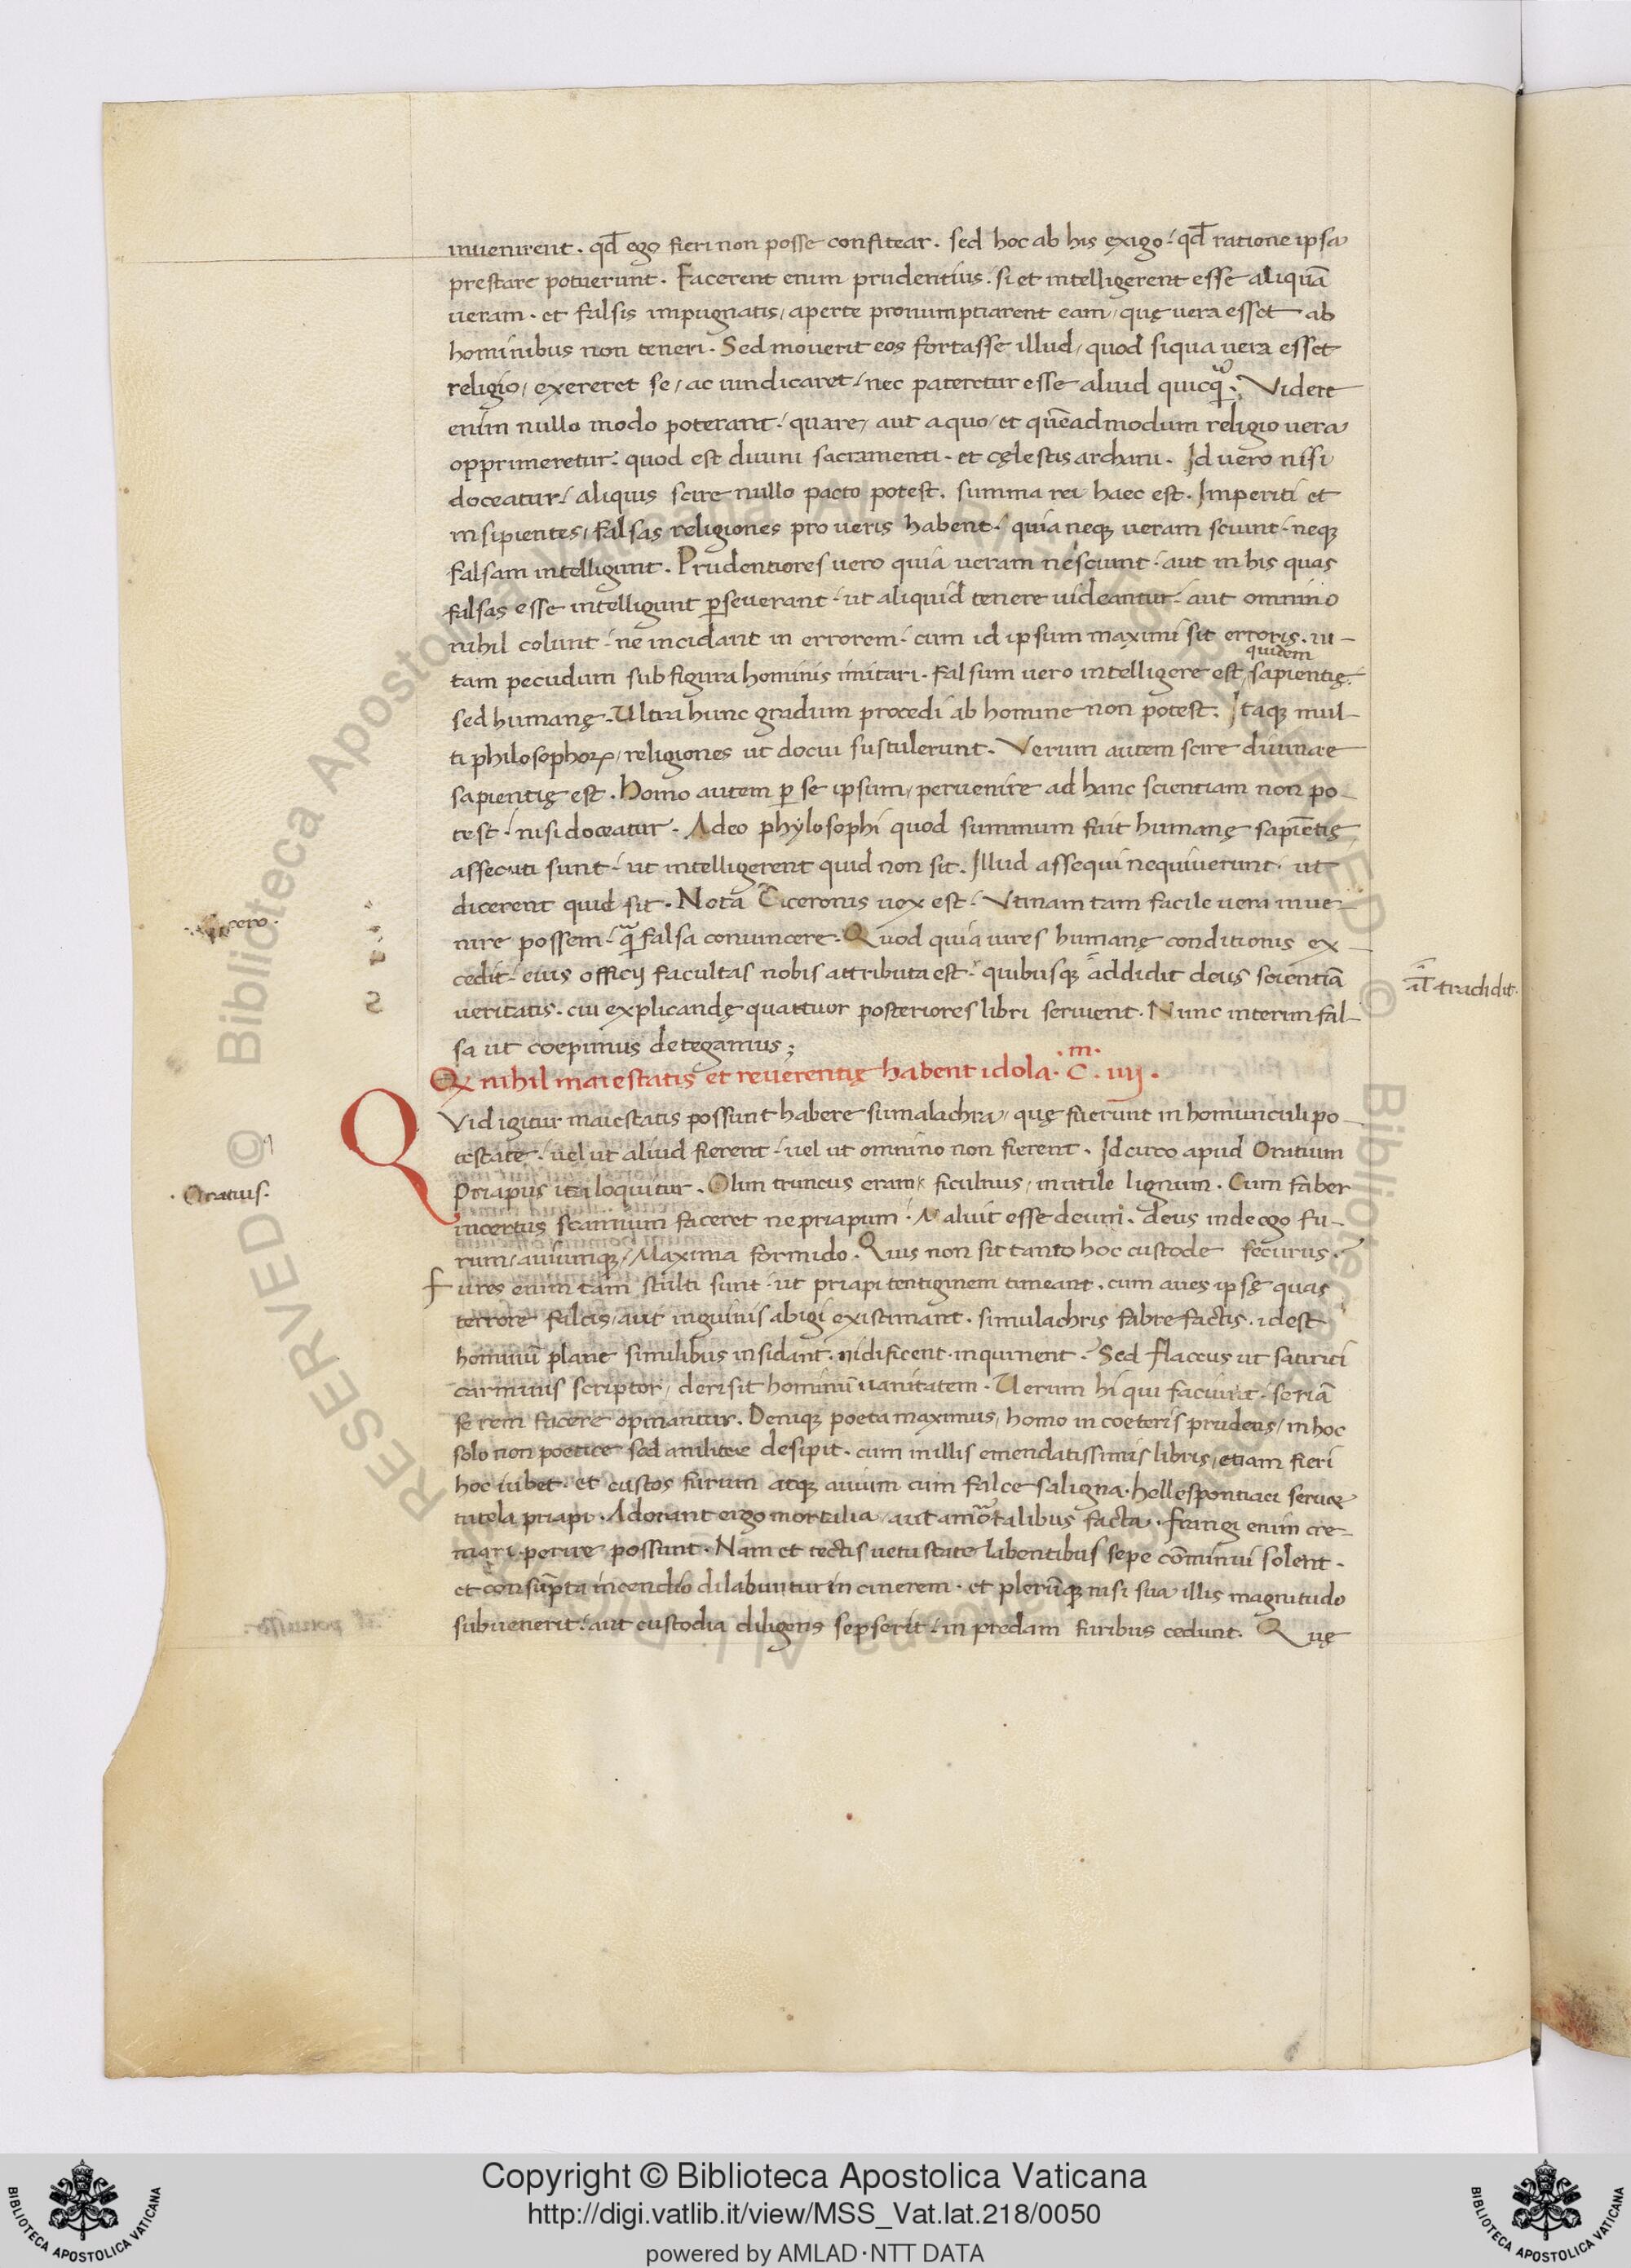 inuenirent. qđ ego fieri non posse confitear. sed hoc ab his exigo. qđ ratione ipsa
prestare potuerunt. Facerent enim prudentius. si et intelligerent esse aliquā
ueram. et falsis impugnatis, aperte pronumptiarent eam, quę uera esset ab
hominibus non teneri. Sed mouerit eos fortasse illud, quod siqua uera esset
religio, exereret se, ac uindicaret. nec pateretur esse aliud quicq̃. Videre
enim nullo modo poterant. quare, aut a quo, et quēadmodum religio uera
opprimeretur. quod est diuini sacramenti. et cęlestis archani. Id uero nisi
doceatur. aliquis scire nullo pacto potest. summa rei haec est. Imperiti et
insipientes, falsas religiones pro ueris habent. quia neq; ueram sciunt. neq;
falsam intelligunt. Prudentiores uero quia ueram nesciunt. aut in his quas
falsas esse intelligunt ꝑseuerant. ut aliquid tenere uideantur. aut omnino
nihil colunt. ne incidant in errorem. cum id ipsum maximi sit erroris. ui-
quidem
tam pecudum sub figura hominis imitari. Falsum uero intelligere est, sapientię.
sed humanę. Ultra hunc gradum procedi ab homine non potest. Itaq; mul-
ti philosophoꝝ, religiones ut docui sustulerunt. Verum autem scire diuinae
sapientię est. Homo autem ꝑ se ipsum, peruenire ad hanc scientiam non po-
test. nisi doceatur. Adeo phylosophi quod summum fuit humanę sapiētię
assecuti sunt. ut intelligerent quid non sit. Illud assequi nequiuerunt. ut
dicerent quid sit. Nota Ciceronis uox est. Vtinam tam facile uera inue-
cero.
nire possem. q̃ falsa conuincere. Quod quia uires humanę conditionis ex-
cedit. eius officij facultas nobis attributa est. quibusq; addidit deus scientiā
al tradidit.
ueritatis. cui explicandę quattuor posteriores libri seruient. Nunc interim fal-
sa ut coepimus detegamus;
Q nihil maiestatis et reuerentię habent idola. C.m. iiij.
Quid igitur maiestatis possunt habere simulachra, quę fuerunt in homunculi po-
testate. uel ut aliud fierent. uel ut omnino non fierent. Idcirco apud Oratium
.Oratius.
Priapus ita loquitur. Olim truncus eram, ficulnus, inutile lignum. Cum faber
incertus scamnum faceret ne priapum. Maluit esse deum. deus inde ego fu-
rum, auiumq;, Maxima formido. Quis non sit tanto hoc custode securus.
Fures enim tam stulti sunt. ut priapi tentiginem timeant. cum aues ipsę quas
terrore falcis, aut inguinis abigi existimant. simulachris fabre factis. idest
hominū plane similibus insidant. nidificent. inquinent. Sed flaccus ut satirici
carminis scriptor, derisit hominū uanitatem. Uerum hi qui faciunt. seriā
se rem facere opinantur. Deniq; poeta maximus, homo in coeteris prudens, in hoc
solo non poetice sed aniliter desipit. cum in illis emendatissimis libris, etiam fieri
hoc iubet. et custos furum atq; auium cum falce saligna. hellespontiaci seruet
tutela priapi. Adorant ergo mortalia, aut a mortalibus facta. frangi enim cre-
mari. perire possunt. Nam et tectis uetustate labentibus sepe cōminui solent.
et consūpta incendio dilabuntur in cinerem. et plerūq; nisi sua illis magnitudo
subuenerit. aut custodia diligens sepserit. in predam furibus cedunt. Quę
Copyright © Biblioteca Apostolica Vaticana
http://digi.vatlib.it/view/MSS_Vat.lat.218/0050
powered by AMLAD·NTT DATA
BIBLIOTECA APOSTOLICA VATICANA
BIBLIOTECA APOSTOLICA VATICANA